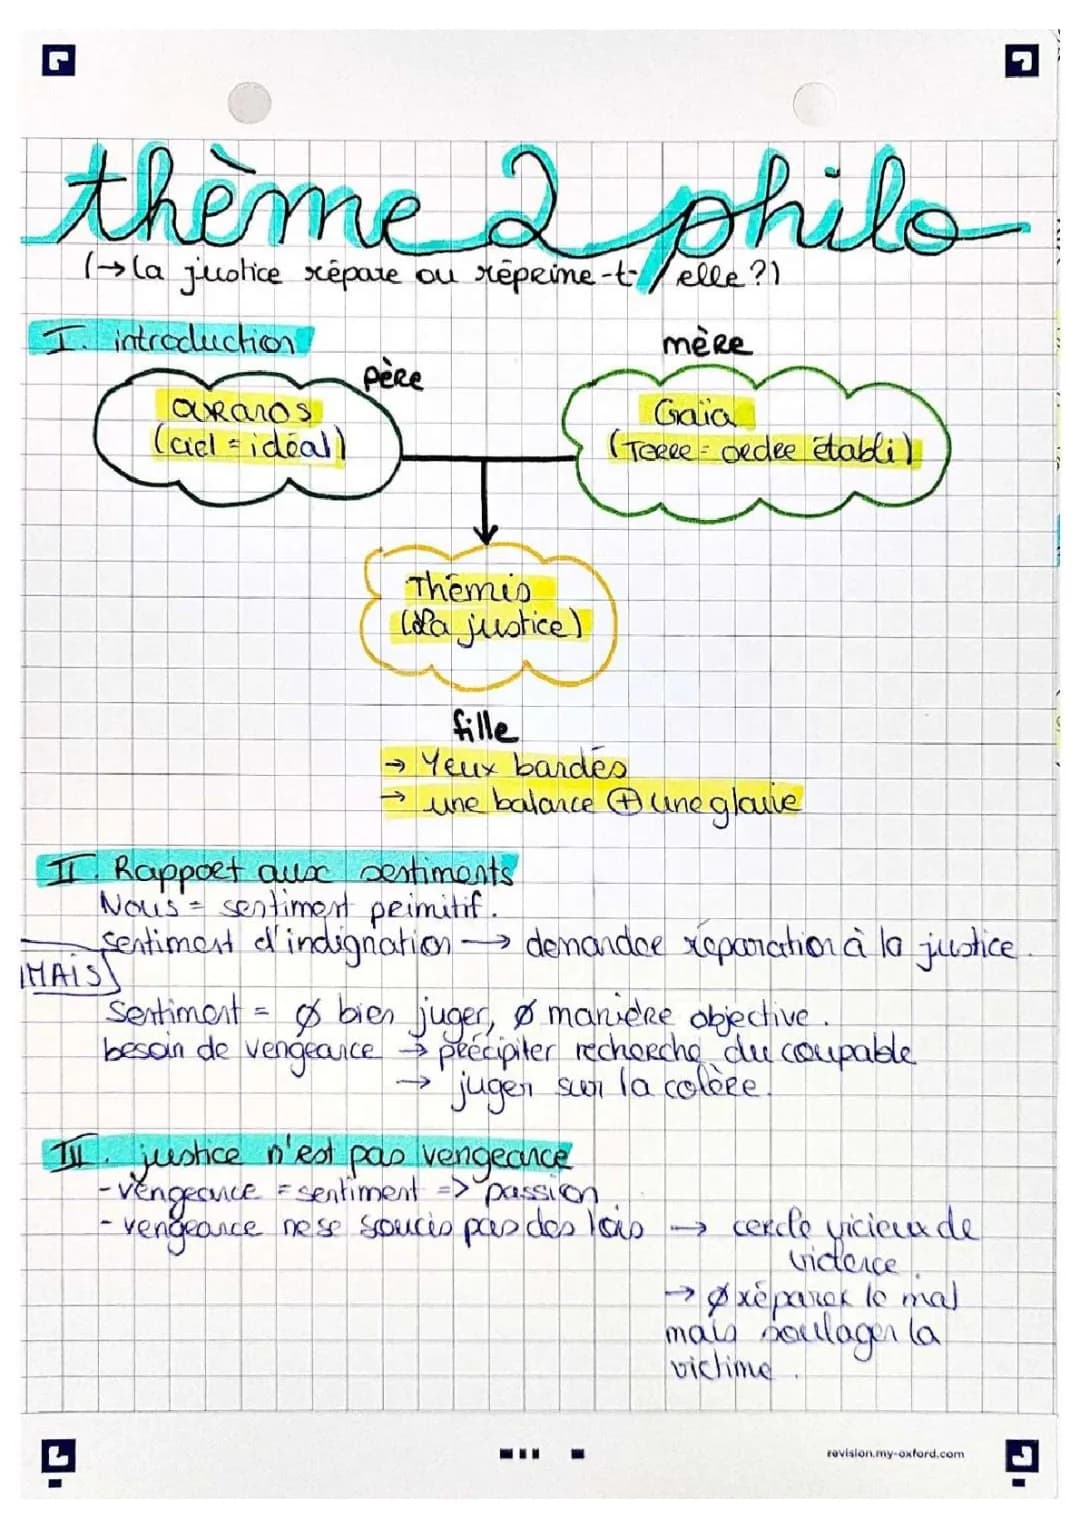 thème 2 philo
(→ la justice répare ou réprime-t-elle ?)
I. introduction
père
mère
ouranos
(ciel = idéal)
Gaïa
(Terre = ordre établi)
Thémis
(la justice)
fille
→ Yeux bandés
→ une balance ⊕ une glaive
II. Rapport aux sentiments
Nous = sentiment primitif.
sentiment d'indignation → demander réparation à la justice.
MAIS
Sentiment = Ø bien juger, Ø manière objective.
besoin de vengeance → précipiter recherche du coupable
→ juger sur la colère.
III. justice n'est pas vengeance
- vengeance = sentiment => passion
- vengeance ne se soucis pas des lois → cercle vicieux de
violence.
→ Ø réparer le mal
mais soulager la
victime.
revision.my-oxford.com